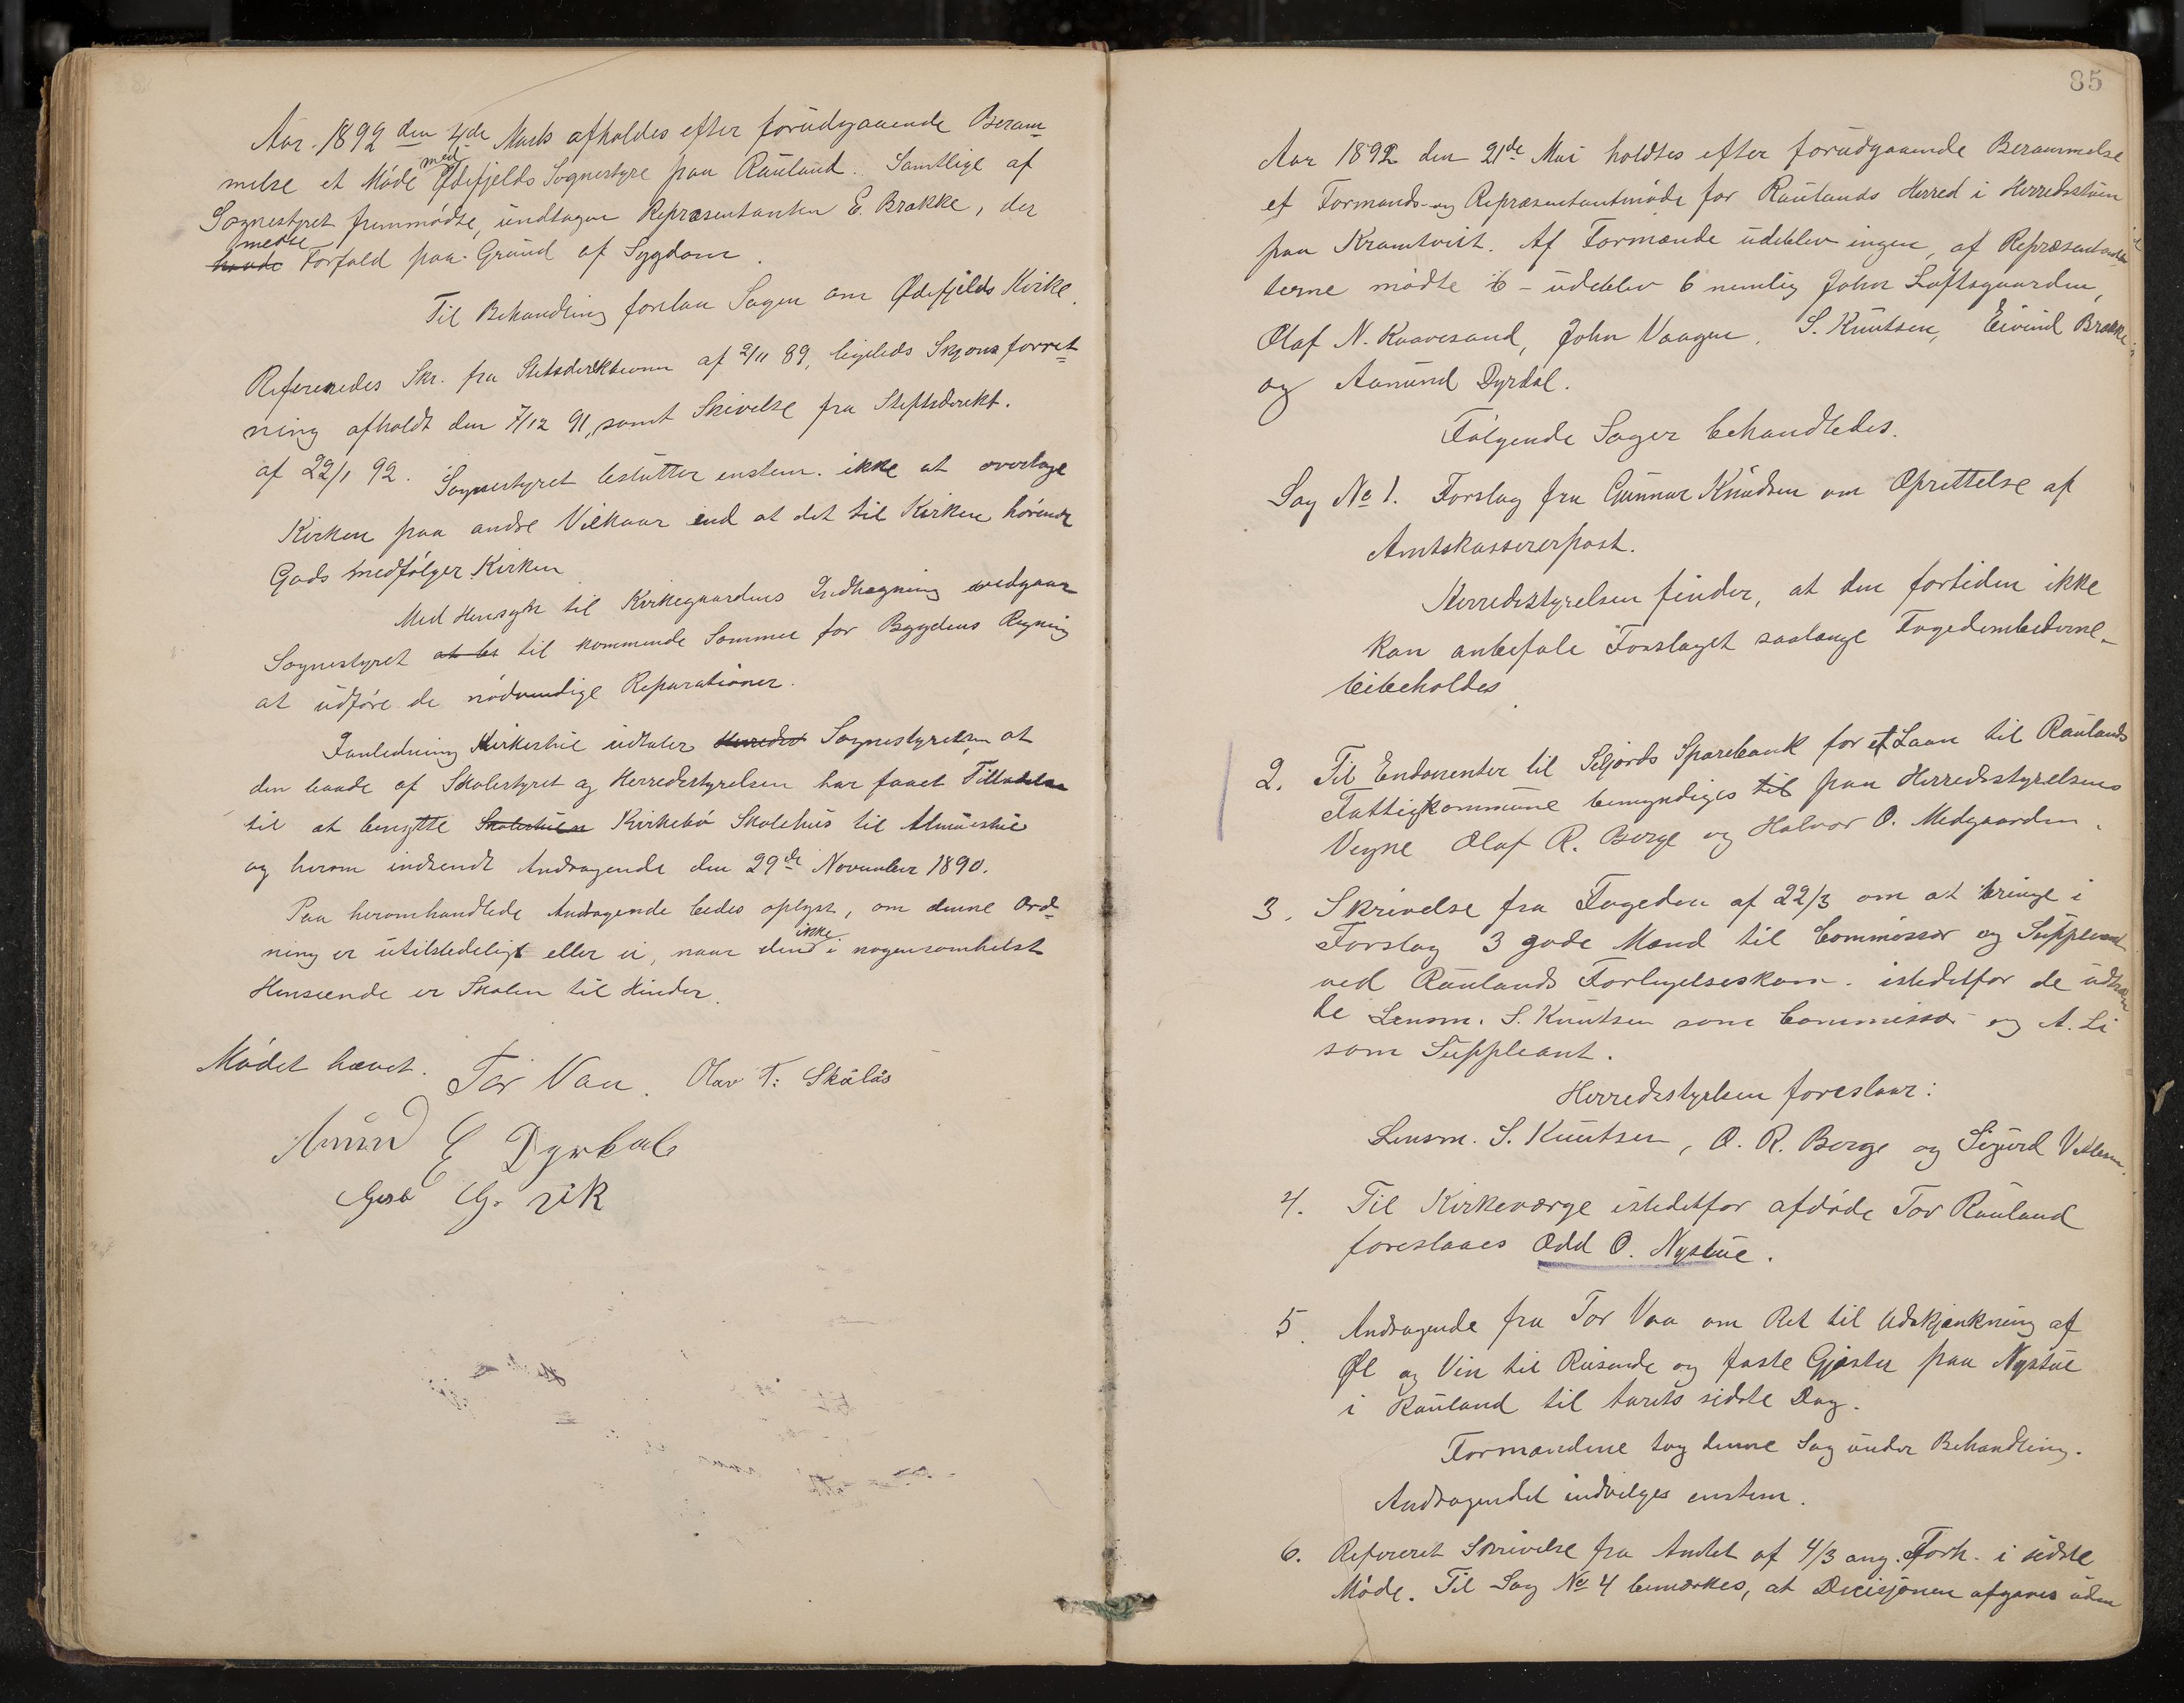 Aar. 1892 den 4de Marts afholdes efter forudgaaende Beram-
melse et Møde med Ødefjelds Sognestyre paa Rauland. Samtlige af
Sognestyret fremmødte, undtagen Repræsentanten E. Brække, der
havde meldte Forfald paa Grund af Sygdom.
Til Behandling forelaa Sagen om Ødefjelds Kirke.
Refereredes Skr. fra Stiftsdirektionen af 2/11 89, ligeleds Skjønsforret-
ning afholdt den 7/12 91, samt Skrivelse fra Stiftsdirekt.
af 22/1 92. Sognestyret beslutter enstem. ikke at overtage
Kirken paa andre Vilkaar end at det til Kirken hørende
Gods medfølger Kirken
Med Hensyn til Kirkegaardens Indhegning vedgaar
Sognestyret at la til kommende Sommer for Bygdens Regning
at udføre de nødvendige Reparationer.
Ianledning Kirkestue udtaler Herreds Sognestyrelsen at
den baade af Skolestyret og Herredsstyrelsen har faaet Tilladelse
til at benytte Skolestuen Kirkebø Skolehus til Almuestue
og herom indsendt Andragende den 29de November 1890.
Paa heromhandlede Andragende bedes oplyst, om denne Ord-
ning er utilstedeligt eller ei, naar den ikke i nogensomhelst
Henseende er Skolen til Hinder.
Mødet hævet. Tor Vaa. Olav T. Skålås
Amund E Dyrdal
G. Vik
85
Aar 1892 den 21de Mai holdtes efter forudgaaende Berammelse
et Formands- og Repræsentantmøde for Raulands Herred i Herredsstuen
paa Kramtvit. Af Formænde udeblev ingen, af Repræsentan-
terne mødte 6 - udeblev 6 nemlig John Loftsgaarden,
Olaf N. Kaavesand, John Vaagen, S. Knutsen, Eivind Brække
og Aamund Dyrdal.
Følgende Sager behandledes.
Sag No 1. Forslag fra Gunnar Knudsen om Oprettelse af
Amtskassererpost.
Herredsstyrelsen finder, at den fortiden ikke
kan anbefale Forslaget saalænge Fogedembederne
bibeholdes
2. Til Endossenter til Seljords Sparebank for et Laan til Raulands
Fattigkommune bemyndiges til paa Herredsstyrelsens
Vegne Olaf R. Berge og Halvor O. Medgaarden.
3. Skrivelse fra Fogeden af 22/3 om at bringe i
Forslag 3 gode Mænd til Commissær og Suppleant
ved Raulands Forligelseskom. istedetfor de udtræ-
de Lensm. S. Knutsen som Commissær og A. Li
som Suppleant.
Herredsstyrelsen foreslaar:
Lensm. S. Knutsen, O. R. Berge og Sigurd Vetlesen.
4. Til Kirkeværge istedetfor afdøde Tov Rauland
foreslaaes Odd O. Nystue.
5. Andragende fra Tor Vaa om Ret til Udskjænkning af
Øl og Vin til Reisende og faste Gjæster paa Nystue
i Rauland til Aarets sidste Dag.
Formændene tog denne Sag under Behandling.
Andragendet indvilges enstem.
6. Refereret Skrivelse fra Amtet af 4/3 ang. Forh. i sidste
Møde. Til Sag No 4 bemærkes, at Decisjonen afgaves uden